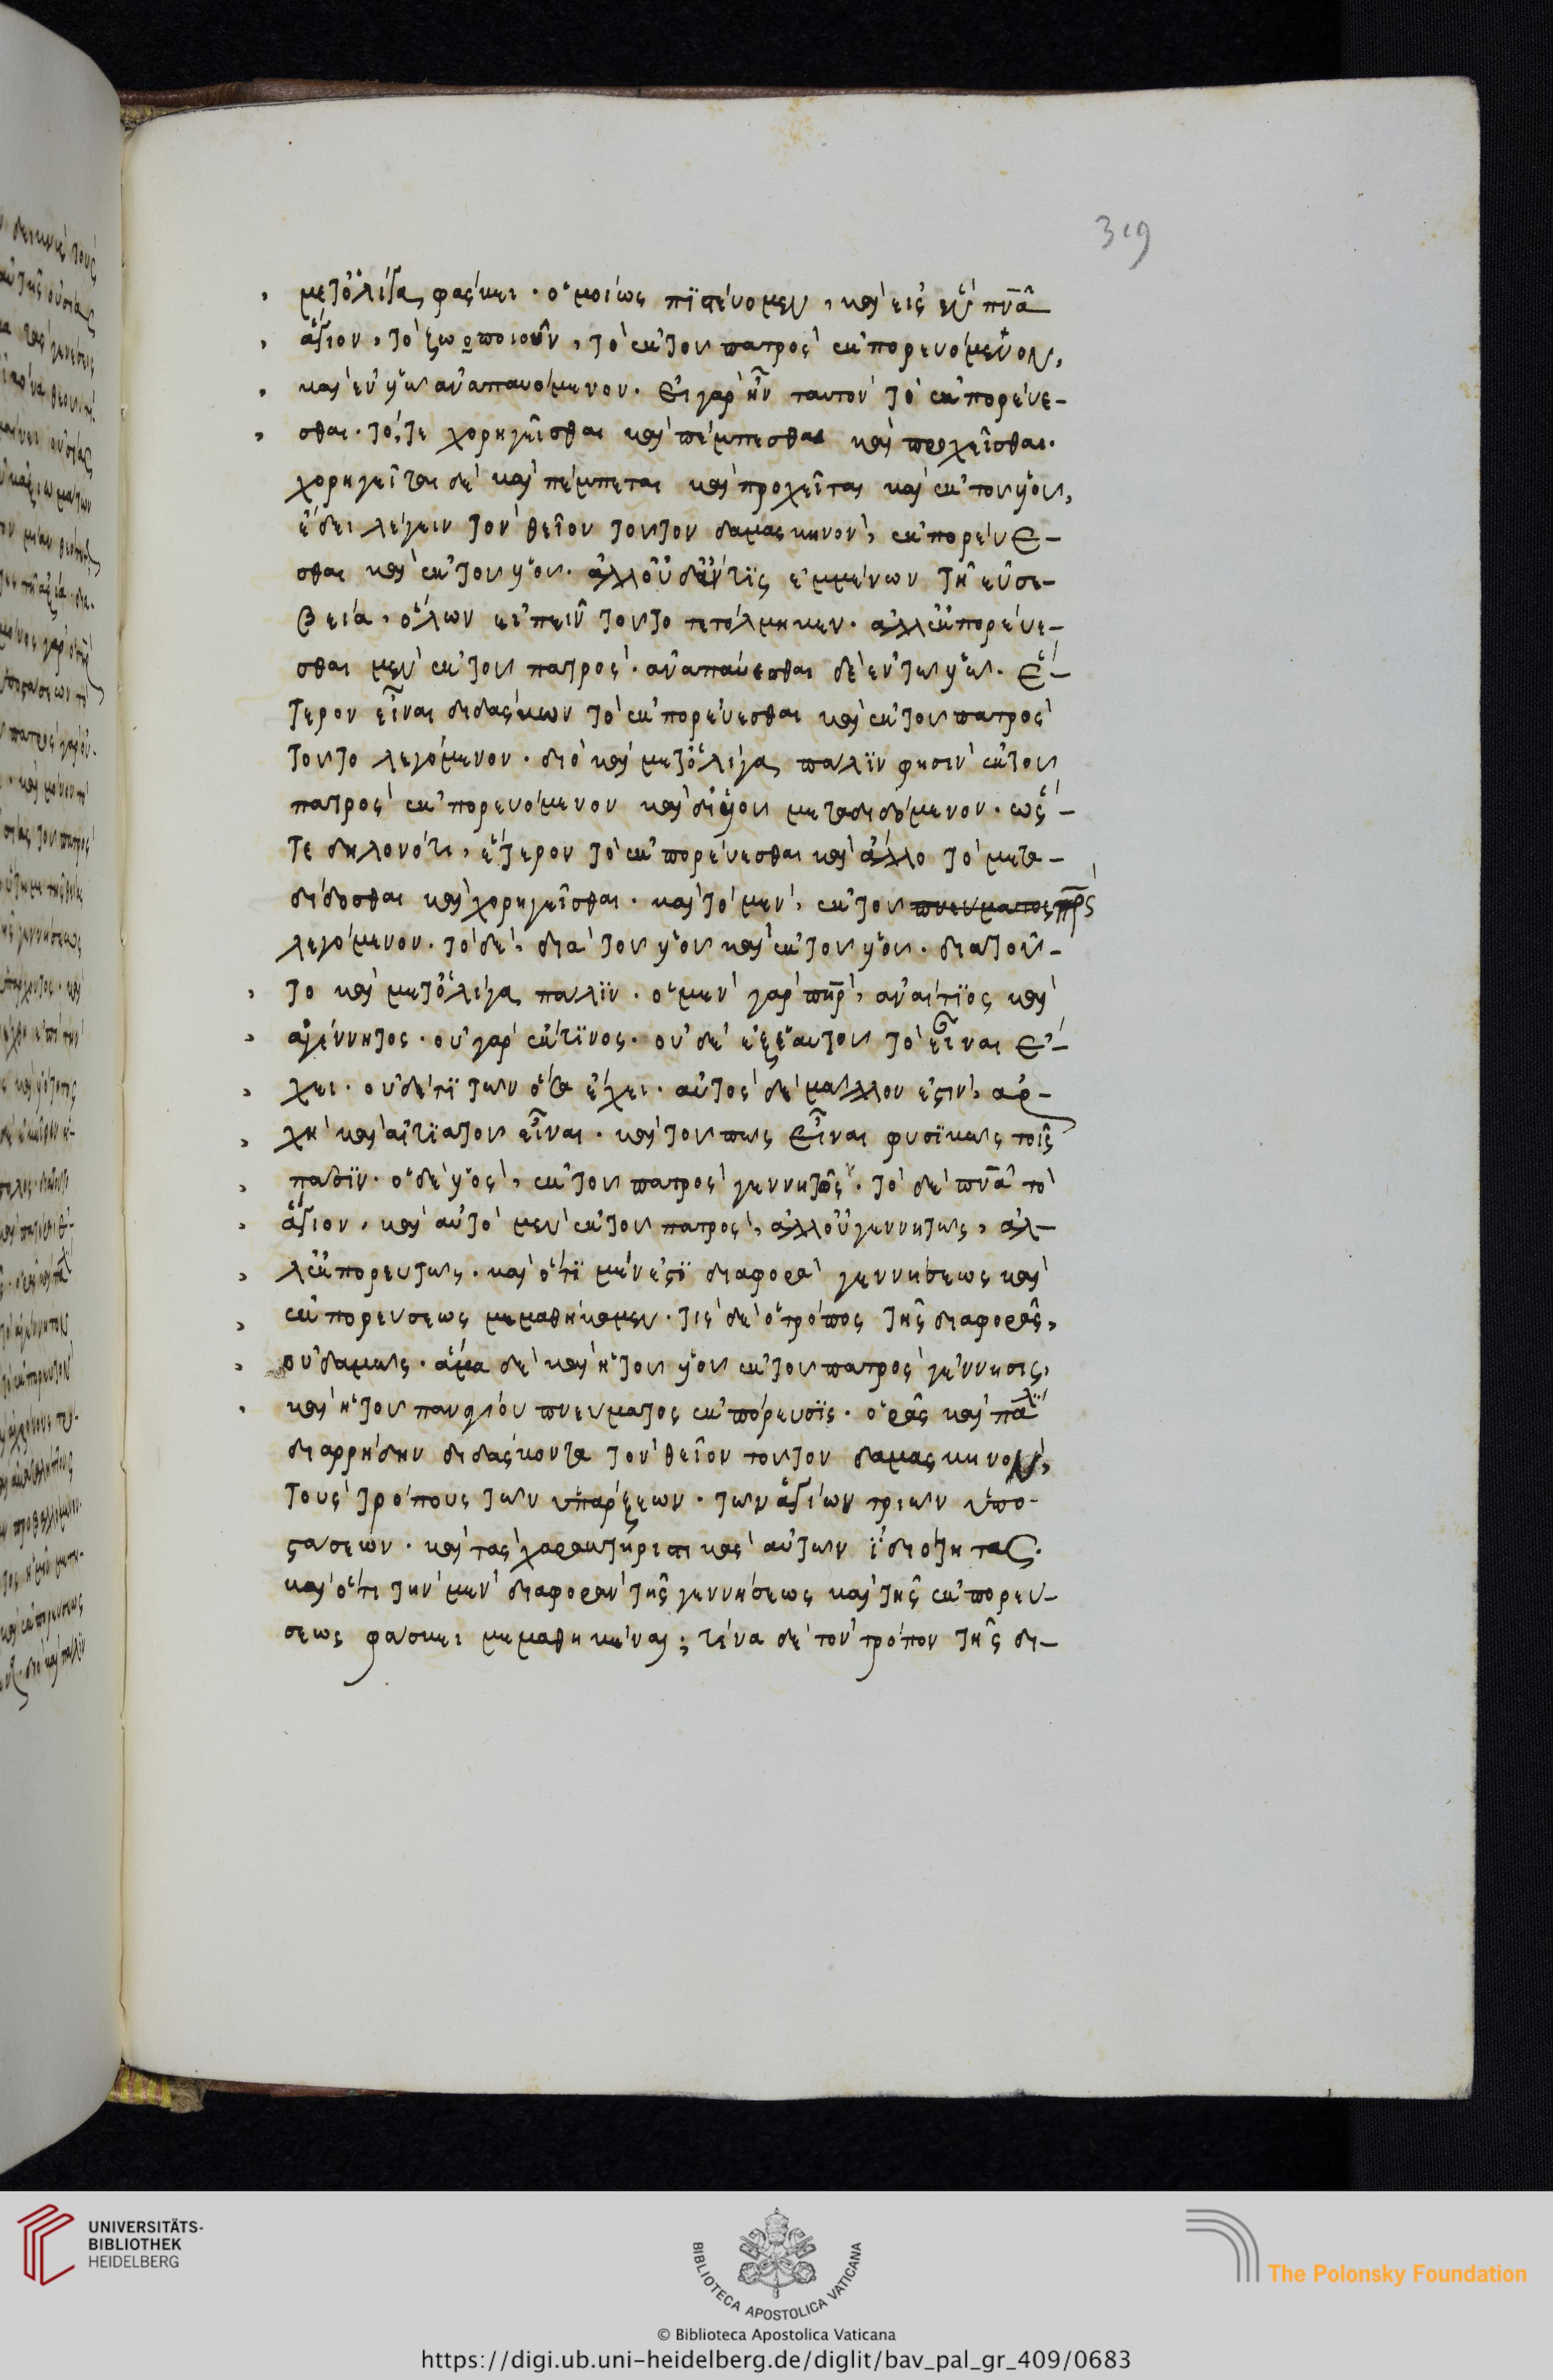 319
μετ' ὀλίγα φάσκει. ὁμοίως πιστεύομεν, καὶ εἰς ἓν πν̅α
ἅγιον, τὸ ζωοποιοῦν, τὸ ἐκ τοῦ πατρὸς ἐκπορευόμενον,
καὶ ἐν υἱῶ ἀναπαυόμενον. Εἰ γὰρ ἦν ταυτὸν τὸ ἐκπορεύε-
σθαι. τό, τε χορηγεῖσθαι καὶ πέμπεσθαι καὶ προχεῖσθαι.
χορηγεῖται δὲ καὶ πέμπεται καὶ προχεῖται καὶ ἐκ τοῦ υἱοῦ,
ἔδει λέγειν τὸν θεῖον τοῦτον δαμασκηνὸν, ἐκπορεύε-
σθαι καὶ ἐκ τοῦ υἱοῦ. ἀλλ' οὐδ' ἄν τις ἐμμένων τῆ εὐσε-
βεία, ὅλων εἰπεῖν τοῦτο τετόλμηκεν. ἀλλ' ἐκπορεύε-
σθαι μὲν ἐκ τοῦ πατρὸς. ἀναπαύεσθαι δὲ ἐν τῶ υἱῶ. ἕ-
τερον εἶναι διδάσκων τὸ ἐκπορεύεσθαι καὶ ἐκ τοῦ πατρὸς
τοῦτο λεγόμενον. διὸ καὶ μετ' ὀλίγα πάλιν φησὶν ἐκ τοῦ
πατρὸς ἐκπορευόμενον καὶ δι' υἱοῦ μεταδιδόμενον. ὥσ-
τε δηλονότι, ἕτερον τὸ ἐκπορεύεσθαι καὶ ἄλλο τὸ μετα-
δίδοσθαι καὶ χορηγεῖσθαι. καὶ τὸ μὲν, ἐκ τοῦ πνεύματος πρ̅ς
λεγόμενον. τὸ δὲ, διὰ τοῦ υἱοῦ καὶ ἐκ τοῦ υἱοῦ. διατοῦ-
το καὶ μετ' ὀλίγα πάλιν. ὁ μὲν γὰρ πη̅ρ, ἀναίτιος καὶ
ἀγέννητος. οὐ γὰρ ἔκ τινος. οὐδὲ ἐξ ἑαυτοῦ τὸ εἶναι ἔ-
χει. οὐδέ τι τῶν ὅσα ἔχει. αὐτὸς δὲ μᾶλλον ἐστὶν, ἀρ-
χὴ καὶ αἰτία τοῦ εἶναι. καὶ τοῦ πῶς εἶναι φυσικῶς τοῖς
πᾶσιν. ὁ δὲ υἱὸς, ἐκ τοῦ πατρὸς γεννητῶς. τὸ δὲ πν̅α τὸ
ἅγιον, καὶ αὐτὸ μὲν ἐκ τοῦ πατρὸς, ἀλλ' οὐ γεννητῶς, ἀλ-
λ' ἐκπορευτῶς. καὶ ὅτι μέν ἐστι διαφορὰ γεννήσεως καὶ
ἐκπορεύσεως μεμαθήκαμεν. τίς δὲ ὁ τρόπος τῆς διαφορᾶς,
οὐδαμῶς. ἅμα δὲ καὶ ἡ τοῦ υἱοῦ ἐκ τοῦ πατρὸς γέννησις,
καὶ ἡ τοῦ παναγίου πνεύματος ἐκπόρευσις. ὁρᾶς καὶ πάλι
διαρρήδην διδάσκοντα τὸν θεῖον τοῦτον δαμασκηνὸν,
τοὺς τρόπους τῶν ὑπάρξεων. τῶν ἁγίων τριῶν ὑπο-
στάσεων. καὶ τὰς χαρακτηριστικὰς αὐτῶν ἰδιότητας.
καὶ ὅτι τὴν μὲν διαφορὰν τῆς γεννήσεως καὶ τῆς ἐκπορεύ-
σεως φάσκει μεμαθηκέναι; τίνα δὲ τὸν τρόπον τῆς δι-
UNIVERSITÄTS-
BIBLIOTHEK
HEIDELBERG
BIBLIOTECA APOSTOLICA VATICANA
The Polonsky Foundation
© Biblioteca Apostolica Vaticana
https://digi.ub.uni-heidelberg.de/diglit/bav_pal_gr_409/0683